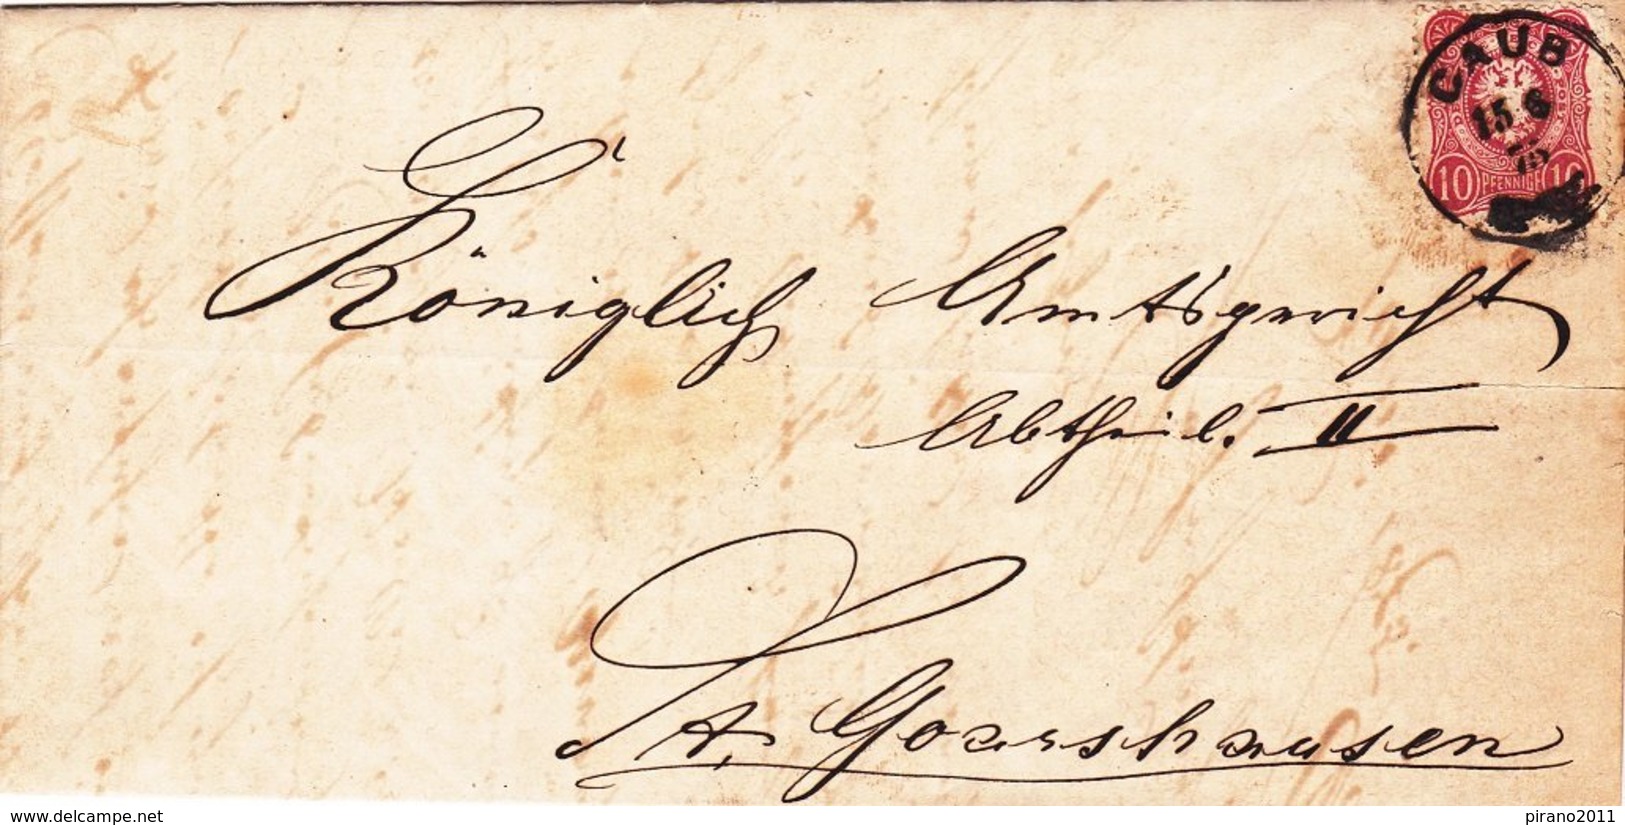 CAUB
15 6
75
10 PFENNIGE 10
Königlich Amtsgericht
Abtheil. II
St. Goarshausen
delcampe.net
pirano2011